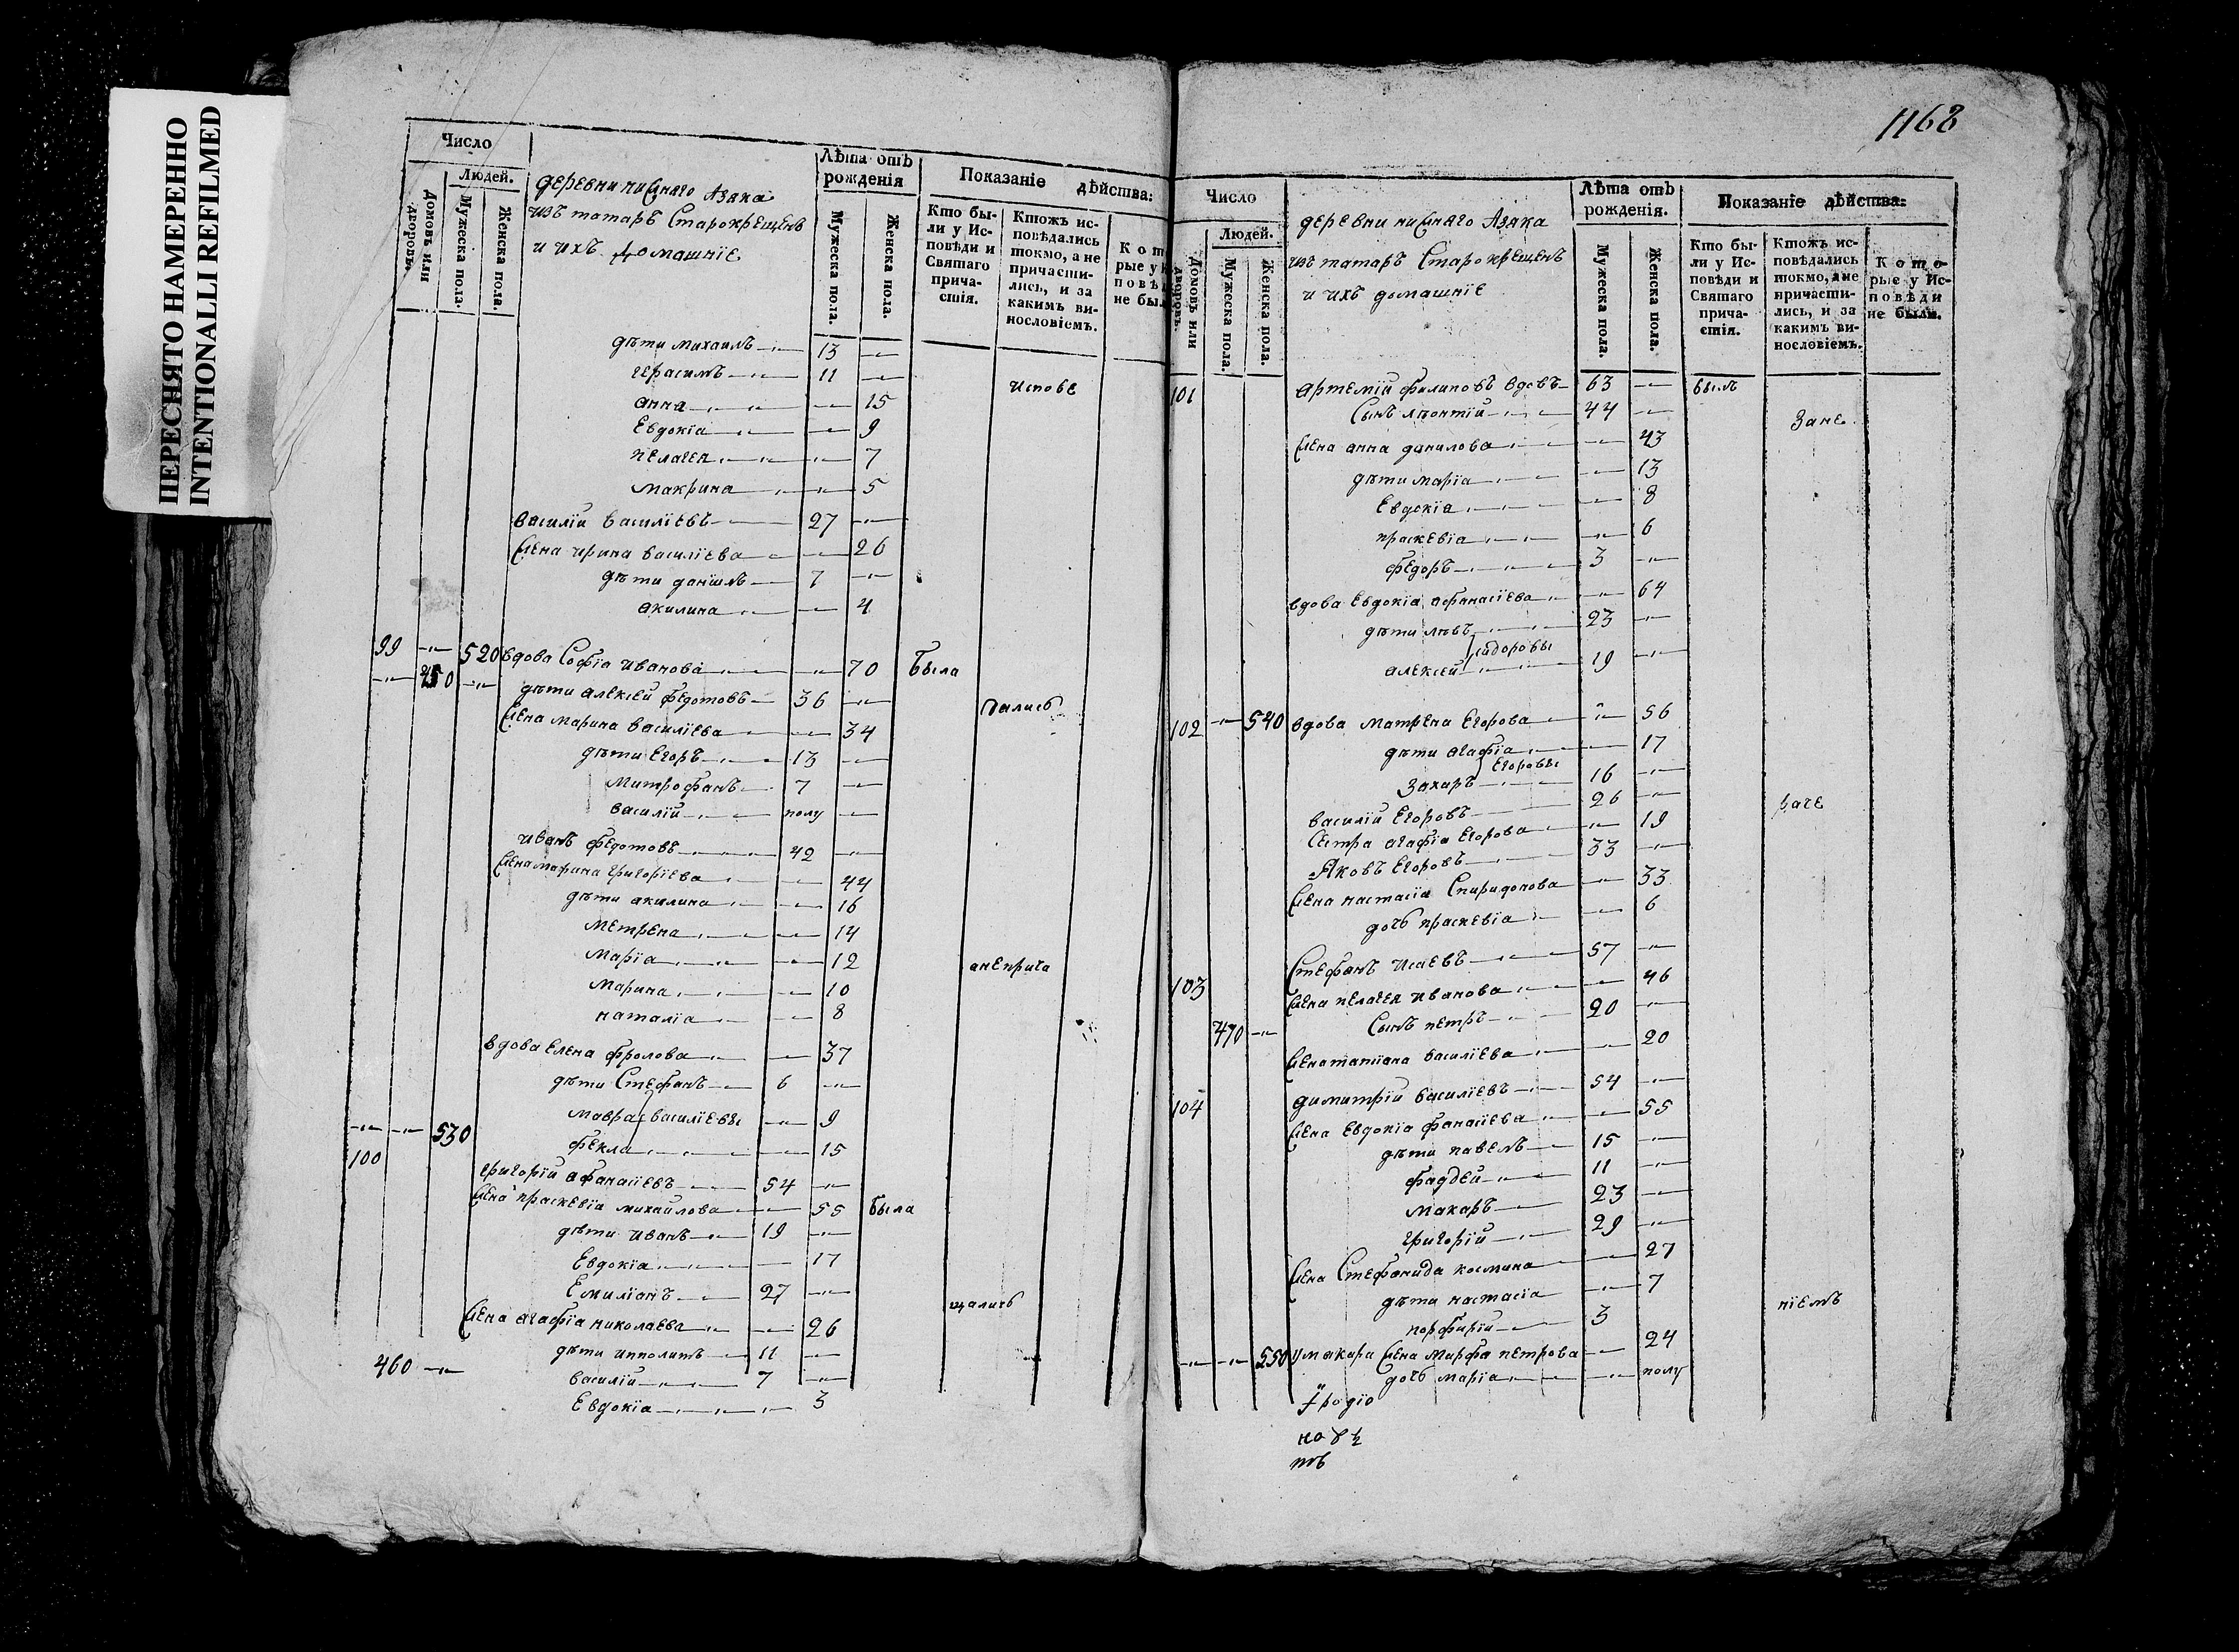 ПЕРЕСНЯТО НАМЕРЕННО
INTENTIONALLI REFILMED
Число
Людей.
Домовъ или дворовъ.
Мужеска пола.
Женска пола.
деревни нижняго Азяка
изъ татаръ Старокрещенъ
и ихъ домашніе
Лѣта отъ рожденія
Мужеска пола.
Женска пола.
Показаніе дѣйства:
Кто бы-
ли у Ис-
повѣди и
Святаго
прича-
стія.
Ктожъ ис-
повѣдались
токмо, а не
причасти-
лись, и за
какимъ ви-
нословіемъ.
Кот
рые у И
повѣ
не был
дѣти михаилъ 13 —
герасимъ 11 —
испове
анна — 15
Евдокіа — 9
пелагея — 7
макрина — 5
василій василіевъ 27 —
жена ирина василіева — 26
дѣти даніилъ 7 —
акилина — 4
99 — 520 вдова Софіа иванова — 70 была
— 450 — дѣти алексей федотовъ 36 —
дались
жена марина василіева — 34
дѣти Егоръ 13 —
митрофанъ 7 —
василій полу —
иванъ федотовъ 42 —
жена марина григоріева — 44
дѣти акилина — 16
метрена — 14
маріа — 12
анеприча
марина — 10
наталіа — 8
вдова Елена фролова — 37
дѣти Стефанъ 6 —
мавра василіевы — 9
— — 530 фекла — 15
100 григорій афанасіевъ 54 —
жена праскевіа михайлова — 55 была
дѣти иванъ 19 —
Евдокіа — 17
Емиліанъ 27 —
щались
жена агафіа николаева — 26
дѣти ипполитъ 11 —
460 — василій 7 —
Евдокіа — 3
1168
Число
Людей.
Домовъ или дворовъ.
Мужеска пола.
Женска пола.
деревни нижняго Азяка
изъ татаръ Старокрещенъ
и ихъ домашніе
Лѣта отъ рожденія.
Мужеска пола.
Женска пола.
Показаніе дѣйства:
Кто бы-
ли у Ис-
повѣди и
Святаго
прича-
стія.
Ктожъ ис-
повѣдались
токмо, а не
причасти-
лись, и за
какимъ ви-
нословіемъ.
Кото-
рые у Ис-
повѣди
не были.
101 артемій филиповъ вдовъ 63 — былъ
Сынъ лѣонтій 44 —
Зане
жена анна данилова — 43
дѣти маріа — 13
Евдокіа — 8
праскевіа — 6
федоръ 3 —
вдова Евдокіа афанасіева — 64
дѣти лѣвъ 23 —
сидоровы
алексей 19 —
102 — 540 вдова матрена Егорова — 56
дѣти агафіа — 17
Егоровы
Захаръ 16 —
василій Егоровъ 26 —
раче
Сѣстра агафіа Егорова — 19
Яковъ Егоровъ 33 —
жена настасіа Спиридонова — 33
дочь праскевіа — 6
103 Стефанъ исаевъ 57 —
жена пелагея иванова — 46
470 — Сынъ петръ 20 —
жена татіана василіева — 20
104 димитрій василіевъ 54 —
жена Евдокіа фанасіева — 55
дѣти павелъ 15 —
фаддей 11 —
макаръ 23 —
григорій 29 —
жена Стефанида космина — 27
дѣти настасіа — 7
ніемъ
порфирій 3
— — 550 у макара жена марфа петрова — 24
дочь маріа — полу